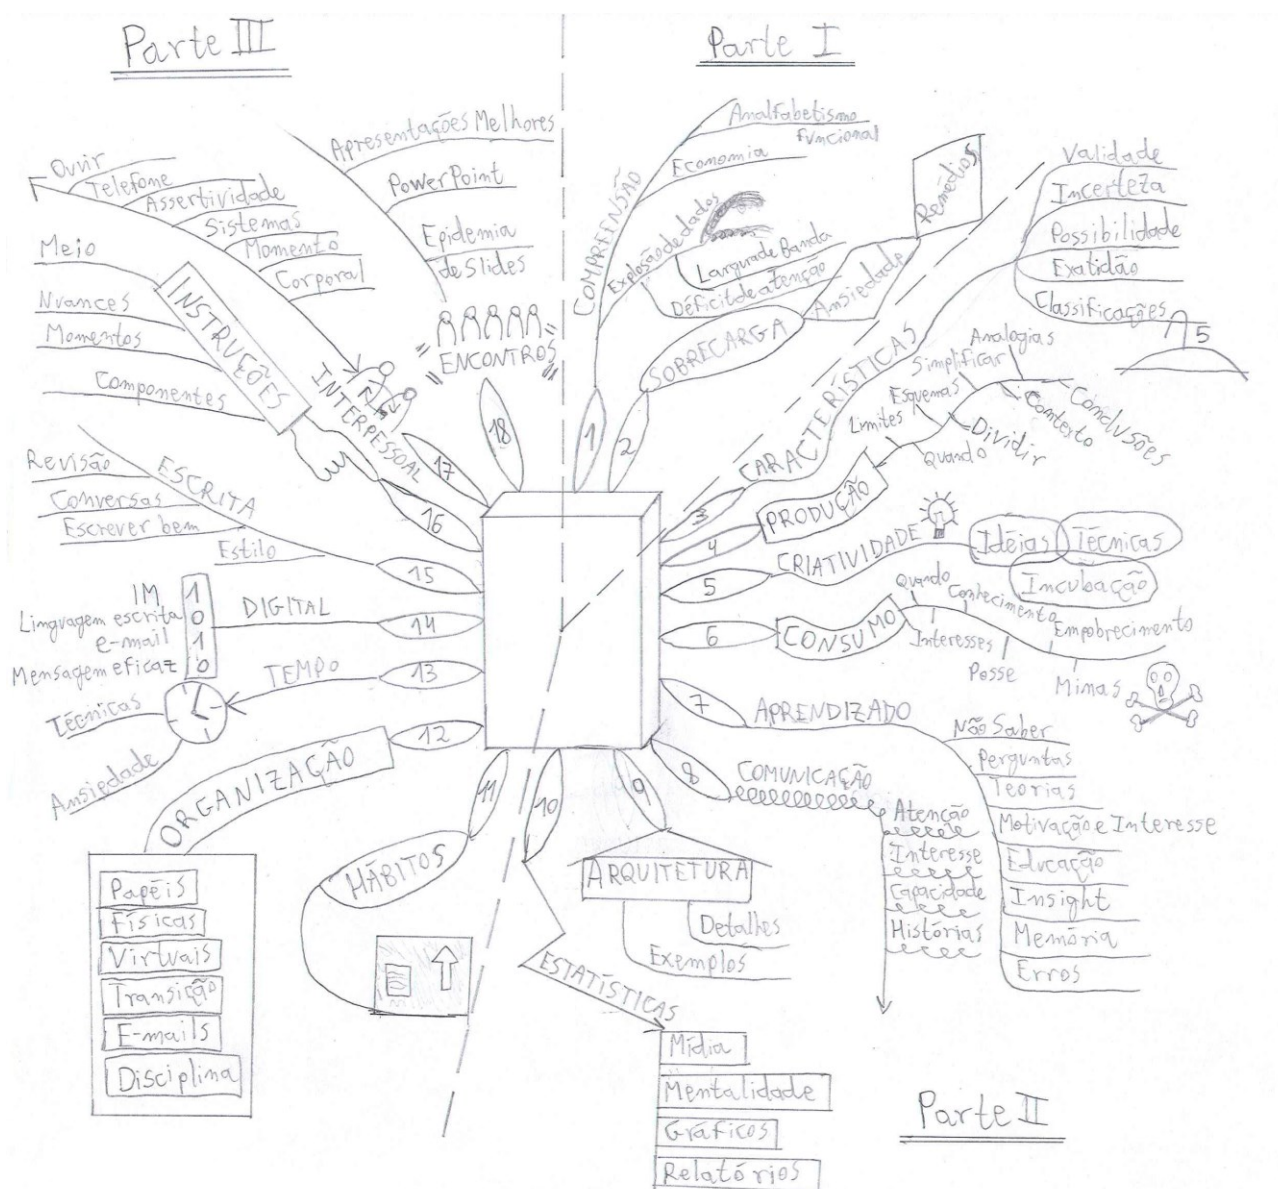 Parte I
1
COMPREENSÃO
Analfabetismo
funcional
Economia
Explosão de dados
Largura de Banda
Déficit de atenção
2
SOBRECARGA
Ansiedade
Remédios
Parte II
3
CARACTERÍSTICAS
Validade
Incerteza
Possibilidade
Exatidão
Classificações
5
4
PRODUÇÃO
Quando
Limites
Dividir
Esquemas
Simplificar
Contexto
Analogias
Conclusões
5
CRIATIVIDADE
Idéias
Técnicas
Incubação
6
CONSUMO
Quando
Interesses
Conhecimento
Posse
Empobrecimento
Minas
7
APRENDIZADO
Não Saber
Perguntas
Teorias
Motivação e Interesse
Educação
Insight
Memória
Erros
8
COMUNICAÇÃO
Atenção
Interesse
Capacidade
Histórias
9
ARQUITETURA
Detalhes
Exemplos
10
ESTATÍSTICAS
Mídia
Mentalidade
Gráficos
Relatórios
Parte III
11
HÁBITOS
12
ORGANIZAÇÃO
Papéis
Físicas
Virtuais
Transição
E-mails
Disciplina
13
TEMPO
Técnicas
Ansiedade
14
DIGITAL
1
0
1
0
IM
Linguagem escrita
e-mail
Mensagem eficaz
15
ESCRITA
Revisão
Conversas
Escrever bem
Estilo
16
INSTRUÇÕES
Meio
Nuances
Momentos
Componentes
17
INTERPESSOAL
Ouvir
Telefone
Assertividade
Sistemas
Momento
Corporal
18
"ENCONTROS"
Apresentações Melhores
PowerPoint
Epidemia
de Slides